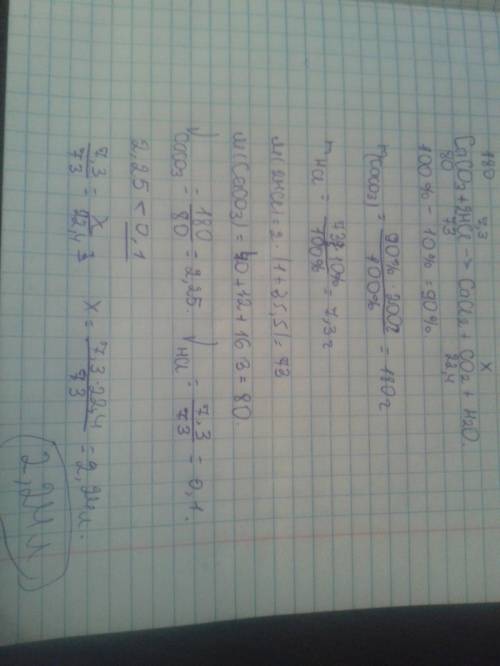 180 7,3 x
CaCO3 + 2HCl → CaCl2 + CO2 + H2O.
80 73 22,4
100% - 10% = 90%
m(CaCO3) = 90% · 200г / 100% = 180г
mHCl = 73 · 10% / 100% = 7,3г
M(2HCl) = 2 · (1 + 35,5) = 73
M(CaCO3) = 40 + 12 + 16 · 3 = 80
νCaCO3 = 180 / 80 = 2,25 νHCl = 7,3 / 73 = 0,1.
2,25 < 0,1
7,3 / 73 = x / 22,4 x = 7,3 · 22,4 / 73 = 2,24л.
2,24л